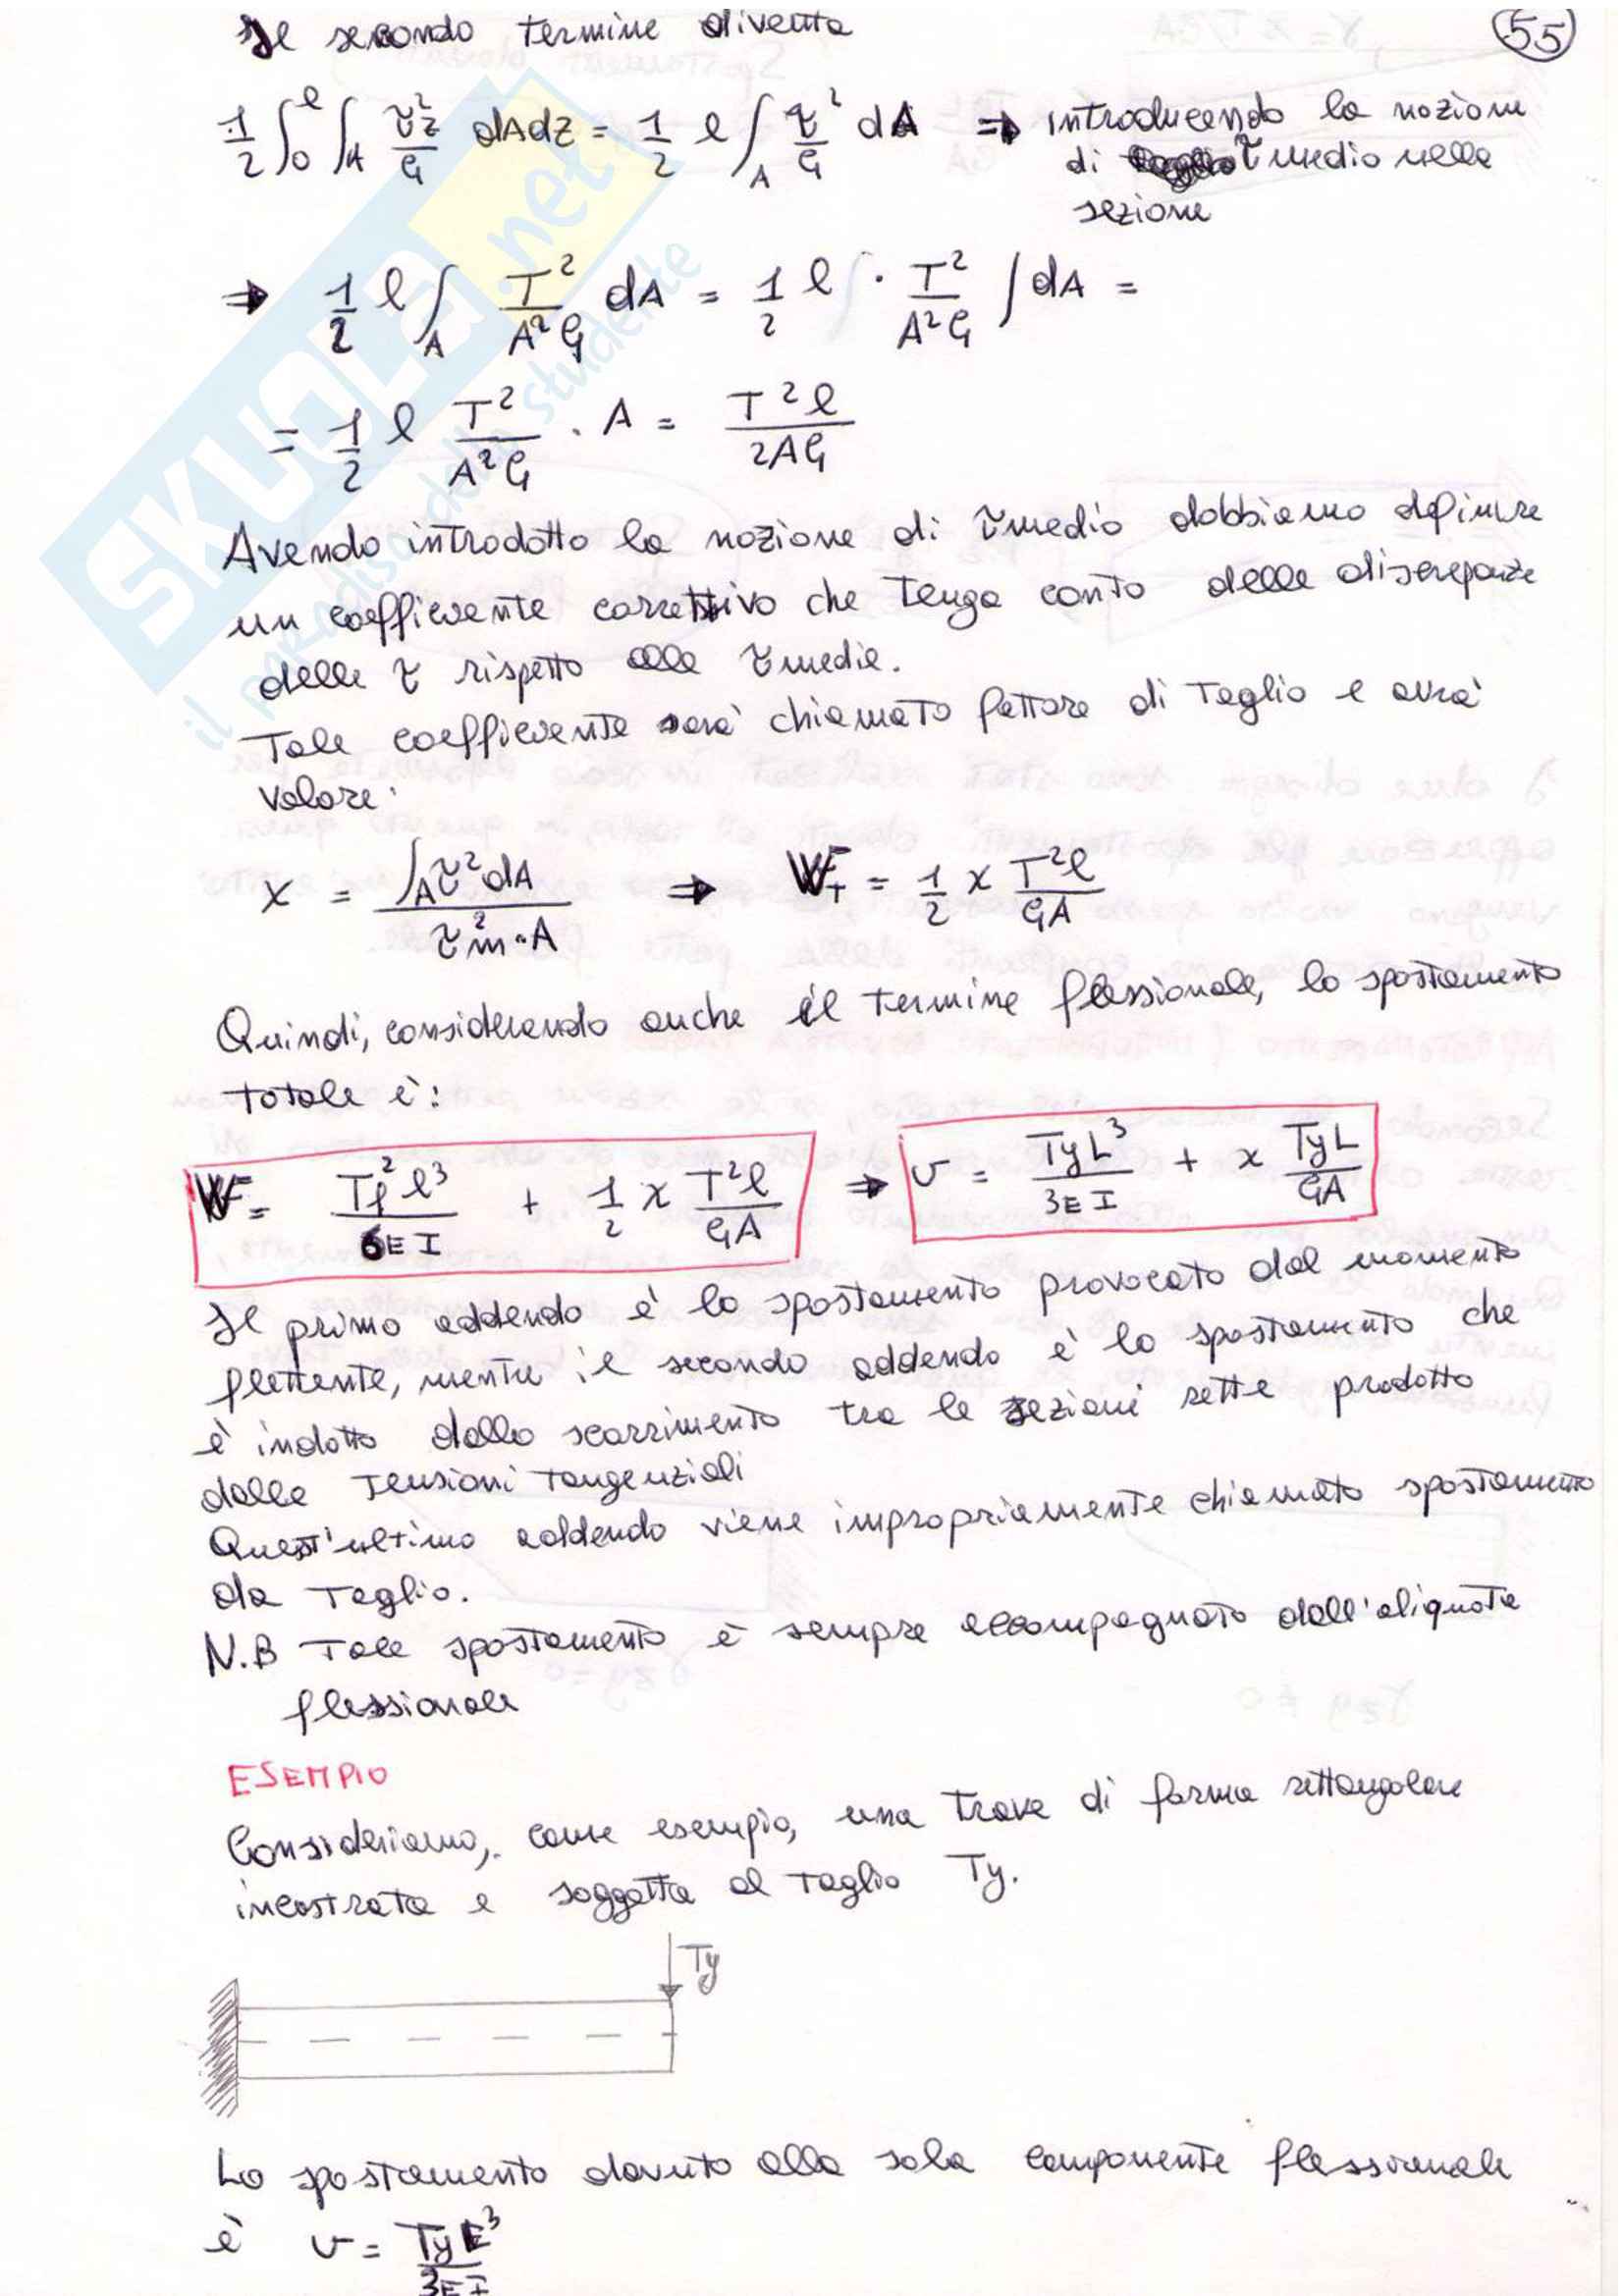 Il secondo termine diventa
55
1/2 ∫₀^l ∫_A τ_z²/G dAdz = 1/2 l ∫_A τ²/G dA ⇒ introducendo la nozione
di τ medio nella
sezione
⇒ 1/2 l ∫_A T²/A²G dA = 1/2 l · T²/A²G ∫dA =
= 1/2 l T²/A²G · A = T²l/2AG
Avendo introdotto la nozione di τmedio dobbiamo definire
un coefficiente correttivo che tenga conto delle discrepanze
delle τ rispetto alle τmedie.
Tale coefficiente sarà chiamato fattore di Taglio e avrà
valore:
χ = ∫_A τ²dA / τ²m·A ⇒ W_T = 1/2 χ T²l/GA
Quindi, considerando anche il termine flessionale, lo spostamento
totale è:
W = T_f² l³/6EI + 1/2 χ T²l/GA ⇒ v = TyL³/3EI + χ TyL/GA
Il primo addendo è lo spostamento provocato dal momento
flettente, mentre il secondo addendo è lo spostamento che
è indotto dallo scorrimento tra le sezioni rette prodotto
dalle Tensioni Tangenziali
Quest'ultimo addendo viene impropriamente chiamato spostamento
da Taglio.
N.B Tale spostamento è sempre accompagnato dall'aliquota
flessionale
ESEMPIO
Consideriamo, come esempio, una Trave di forma rettangolare
incastrata e soggetta al Taglio Ty.
Ty
Lo spostamento dovuto alla sola componente flessionale
è v = TyL³/3EI
SKUOLA.net
il paradiso dello studente